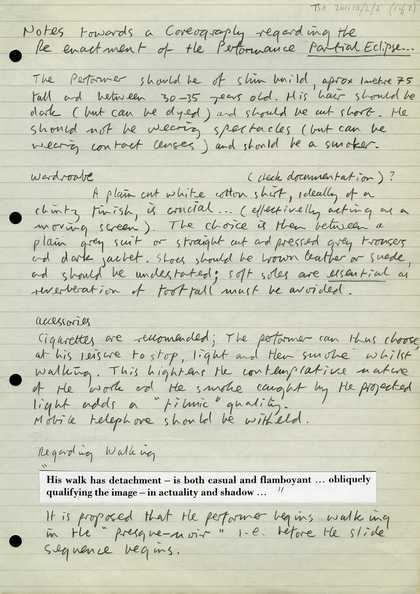 TGA 201112/2/2 (1 of 2)
Notes towards a Coreography regarding the
Re enactment of the Performance Partial Eclipse...
The Performer should be of slim build, aprox 1 metre 75
tall and between 30-35 years old. His hair should be
dark (but can be dyed) and should be cut short. He
should not be wearing spectacles (but can be
wearing contact lenses) and should be a smoker.
Wardroabe (check documentation)?
A plain cut white cotton shirt, ideally of a
chintz finish, is crucial ... (effectivelly acting as a
moving screen). The choice is then between a
plain grey suit or straight cut and pressed grey trousers
and dark jacket. Shoes should be brown leather or suede,
and should be understated; soft soles are essential as
reverberation of footfall must be avoided.
accessories
Cigarettes are recomended; The performer can thus choose,
at his leisure to stop, light and then smoke whilst
walking. This hightens the contemplative nature
of the work and the smoke caught by the projected
light adds a "filmic" quality.
Mobile telephone should be witheld.
Regarding Walking
"His walk has detachment – is both casual and flamboyant ... obliquely
qualifying the image – in actuality and shadow ... "
It is proposed that the performer begins walking
in the "presque-noir" i.e. before the slide
sequence begins.